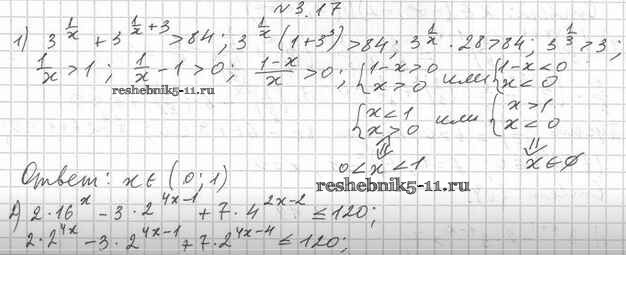 № 3.17
1) 3^{1/x} + 3^{1/x + 3} > 84; 3^{1/x} (1+3^3) > 84; 3^{1/x} · 28 > 84; 3^{1/3} > 3;
1/x > 1; 1/x - 1 > 0; (1-x)/x > 0; { 1-x > 0 x > 0 или { 1-x < 0 x < 0
reshebnik5-11.ru
{ x < 1 x > 0 или { x > 1 x < 0
⇓ ⇓
0 < x < 1 x ∈ ∅
Ответ: x ∈ (0; 1)
reshebnik5-11.ru
2) 2·16^x - 3·2^{4x-1} + 7·4^{2x-2} ≤ 120;
2·2^{4x} - 3·2^{4x-1} + 7·2^{4x-4} ≤ 120;